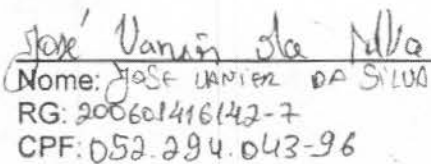 José Vanier da Silva
Nome: JOSE VANIER DA SILVA
RG: 200601416142-7
CPF: 052.294.043-96